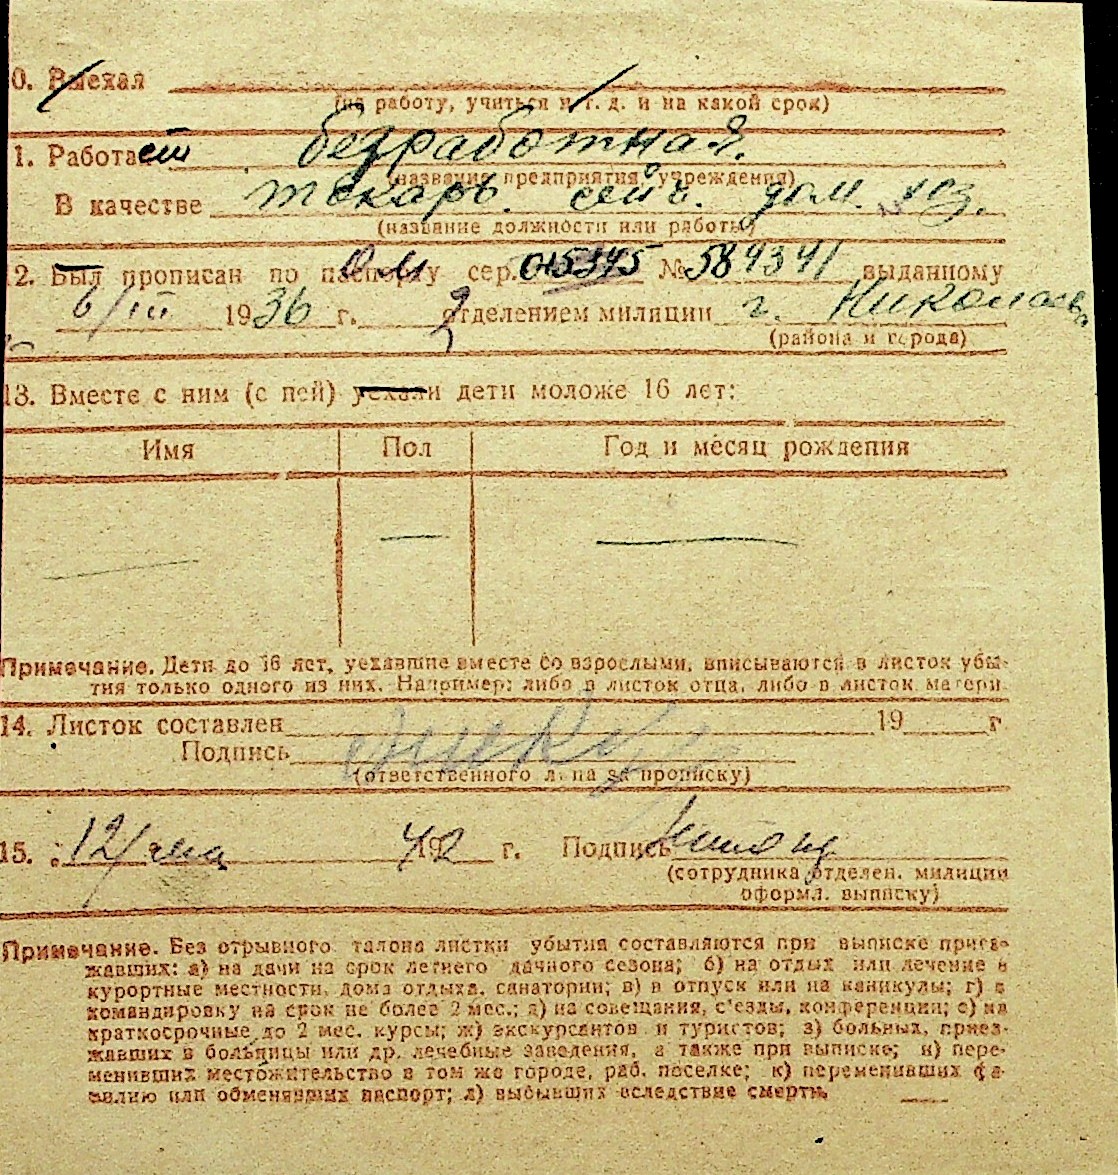 0. Выехал
(на работу, учиться и т. д. и на какой срок)
1. Работает безработная.
(название предприятия, учреждения)
В качестве токарь. сейч. дом. хоз.
(название должности или работы)
2. Был прописан по паспорту сер. 015345 № 584341 выданному
6/III 1936 г. 2 отделением милиции г. Николаева
(района и города)
13. Вместе с ним (с ней) уехали дети моложе 16 лет:
Имя Пол Год и месяц рождения
— — —
Примечание. Дети до 16 лет, уехавшие вместе со взрослыми, вписываются в листок убы-
тия только одного из них. Например: либо в листок отца, либо в листок матери.
14. Листок составлен 19 г
Подпись
(ответственного лица за прописку)
15. 12/ 1942 г. Подпись
(сотрудника отделен. милиции
оформл. выписку)
Примечание. Без отрывного талона листки убытия составляются при выписке приез-
жавших: а) на дачи на срок летнего дачного сезона; б) на отдых или лечение в
курортные местности, дома отдыха, санатории; в) в отпуск или на каникулы; г) в
командировку на срок не более 2 мес.; д) на совещания, с'езды, конференции; е) на
краткосрочные до 2 мес. курсы; ж) экскурсантов и туристов; з) больных, приез-
жавших в больницы или др. лечебные заведения, а также при выписке; и) пере-
менивших местожительство в том же городе, раб. поселке; к) переменивших фа-
милию или обменявших паспорт; л) выбывших вследствие смерти.